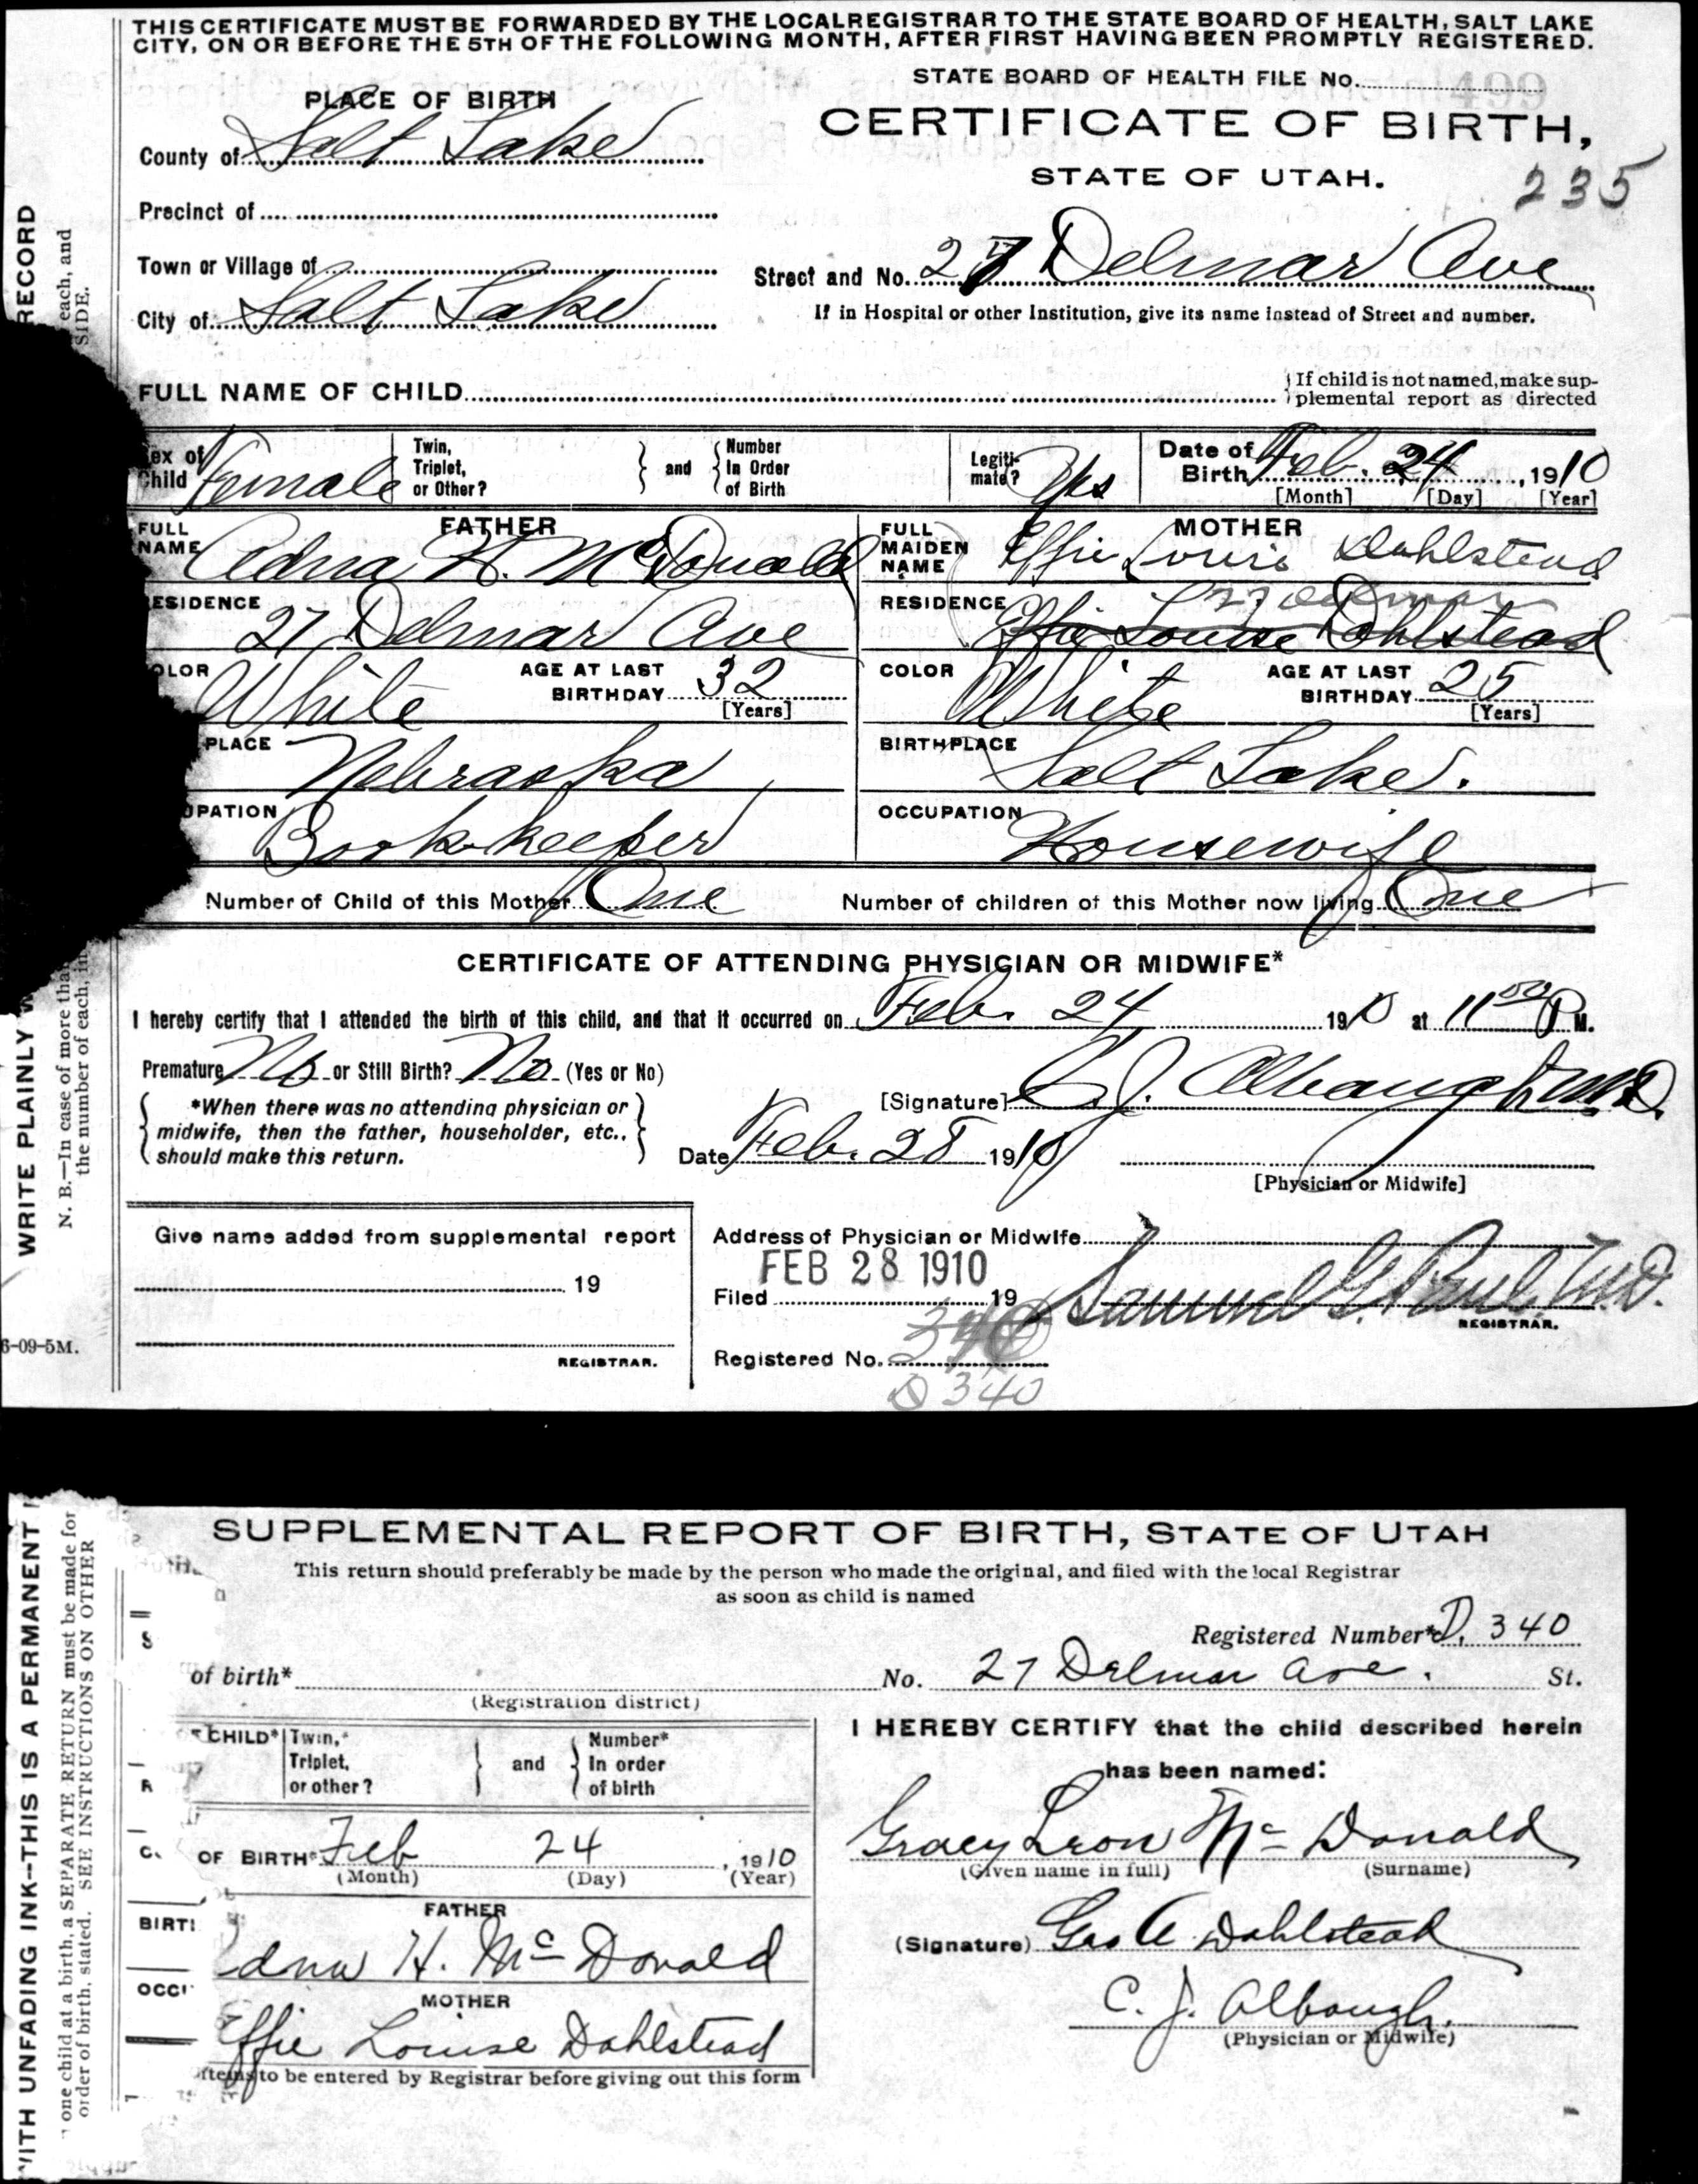 THIS CERTIFICATE MUST BE FORWARDED BY THE LOCAL REGISTRAR TO THE STATE BOARD OF HEALTH, SALT LAKE
CITY, ON OR BEFORE THE 5TH OF THE FOLLOWING MONTH, AFTER FIRST HAVING BEEN PROMPTLY REGISTERED.
STATE BOARD OF HEALTH FILE No. 499
PLACE OF BIRTH
CERTIFICATE OF BIRTH,
County of Salt Lake
STATE OF UTAH.
235
Precinct of
Town or Village of
Street and No. 27 Delmar Ave
City of Salt Lake
If in Hospital or other Institution, give its name instead of Street and number.
FULL NAME OF CHILD
If child is not named, make sup-
plemental report as directed
ex of Child Female
Twin, Triplet, or Other? and Number In Order of Birth
Legiti-mate? Yes
Date of Birth Feb. 24, 1910
[Month] [Day] [Year]
FATHER
FULL NAME Adna H. McDonald
MOTHER
FULL MAIDEN NAME Effie Louise Dahlstead
ESIDENCE 27 Delmar Ave
RESIDENCE 27 Delmar
Effie Louise Dahlstead
OLOR White AGE AT LAST BIRTHDAY 32 [Years]
COLOR White AGE AT LAST BIRTHDAY 25 [Years]
PLACE Nebraska
BIRTHPLACE Salt Lake.
UPATION Bookkeeper
OCCUPATION Housewife
Number of Child of this Mother One Number of children of this Mother now living One
CERTIFICATE OF ATTENDING PHYSICIAN OR MIDWIFE*
I hereby certify that I attended the birth of this child, and that it occurred on Feb. 24 1910 at 11 00 P M.
Premature No or Still Birth? No (Yes or No)
*When there was no attending physician or
midwife, then the father, householder, etc.,
should make this return.
[Signature] C. J. Albaugh M.D.
Date Feb. 28 1910
[Physician or Midwife]
Give name added from supplemental report
19
REGISTRAR.
Address of Physician or Midwife
FEB 28 1910
Filed 19 Samuel G. Paul, M.D.
REGISTRAR.
Registered No. 340
D 340
6-09-5M.
RECORD
each, and
SIDE.
WRITE PLAINLY W
N. B.—In case of more tha
the number of each, in
SUPPLEMENTAL REPORT OF BIRTH, STATE OF UTAH
This return should preferably be made by the person who made the original, and filed with the local Registrar
as soon as child is named
Registered Number* D. 340
of birth* No. 27 Delmar Ave. St.
(Registration district)
CHILD* Twin,* Triplet, or other? and Number* In order of birth
I HEREBY CERTIFY that the child described herein
has been named:
OF BIRTH* Feb 24, 1910
(Month) (Day) (Year)
Gracy Leon Mc Donald
(Given name in full) (Surname)
FATHER
BIRTI
dna H. Mc Donald
(Signature) Geo A Dahlstead
OCC
MOTHER
Effie Louise Dahlstead
C. J. Albaugh.
(Physician or Midwife)
items to be entered by Registrar before giving out this form
WITH UNFADING INK--THIS IS A PERMANENT
one child at a birth, a SEPARATE RETURN must be made for
order of birth, stated. SEE INSTRUCTIONS ON OTHER